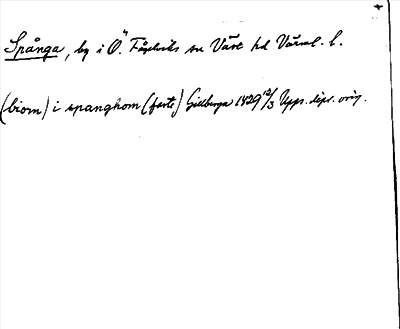 Spånga, by i Ö. Fågelviks sn Väse hd Värml. l.
(biorn) i spanghom (farts) Gillberga 1429 12/3 Upps. dipl. orig.